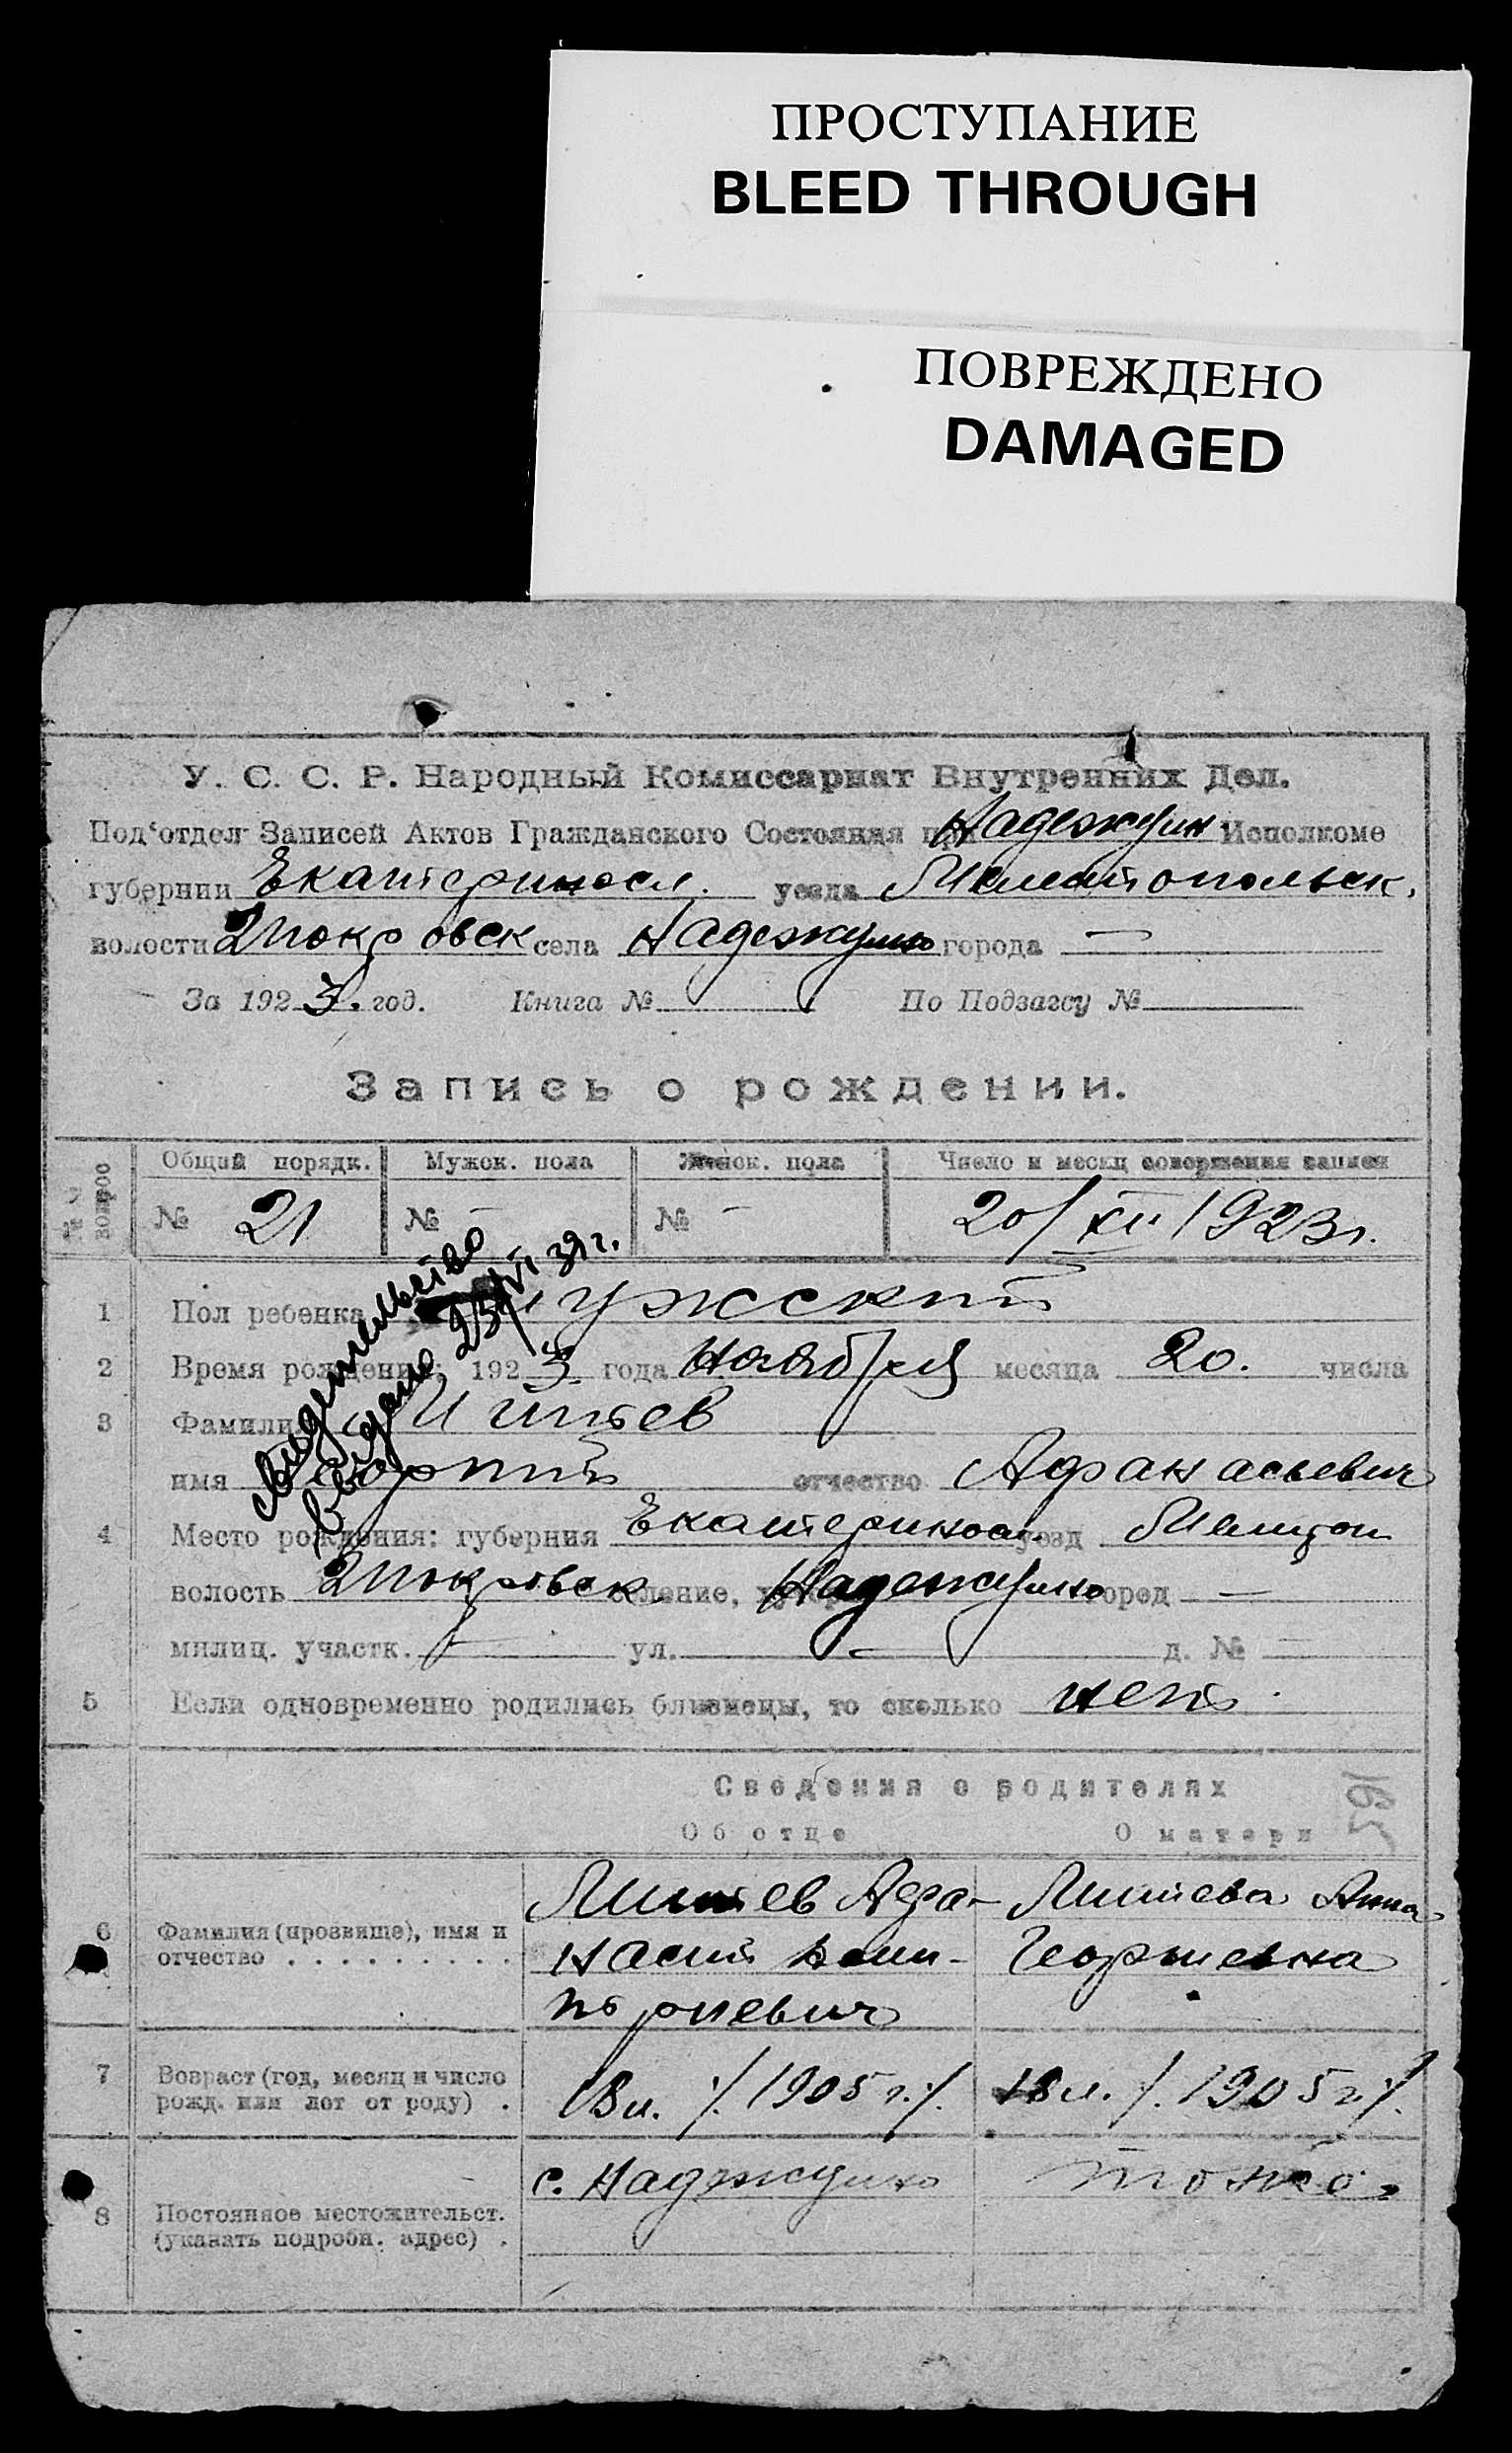 ПРОСТУПАНИЕ
BLEED THROUGH
ПОВРЕЖДЕНО
DAMAGED
У. С. С. Р. Народный Комиссариат Внутренних Дел.
Под‘отдел Записей Актов Гражданского Состояния при Надеждин Исполкоме
губернии Екатериносл. уезда Мелитопольск.
волости 2 Покровск села Надеждино города —
За 1923. год. Книга № По Подзагсу №
Запись о рождении.
Общий порядк. Мужск. пола Женск. пола Число и месяц совершения записи
№ 21 № - № - 20/XII 1923г.
свидетельство
выдано 23/VI 39г.
1 Пол ребенка мужский
2 Время рождения: 1923 года Ноября месяца 20. числа
3 Фамилия
имя отчество Афанасьевич
4 Место рождения: губерния Екатериносл. уезд Мелитоп
волость 2 Покровск. селение, хутор Надеждино город —
милиц. участк. — ул. — д. № —
5 Если одновременно родились близнецы, то сколько нет
Сведения о родителях
195
Об отце О матери
6 Фамилия (прозвище), имя и отчество . . . . . . . . .
Афа-
насий
Анна
Георгиевна
7 Возраст (год, месяц и число рожд. или лет от роду) .
18 л. ./. 1905 г. ./. 18 л. ./. 1905 г. ./.
8 Постоянное местожительст. (указать подробн. адрес) .
с. Надеждино тоже